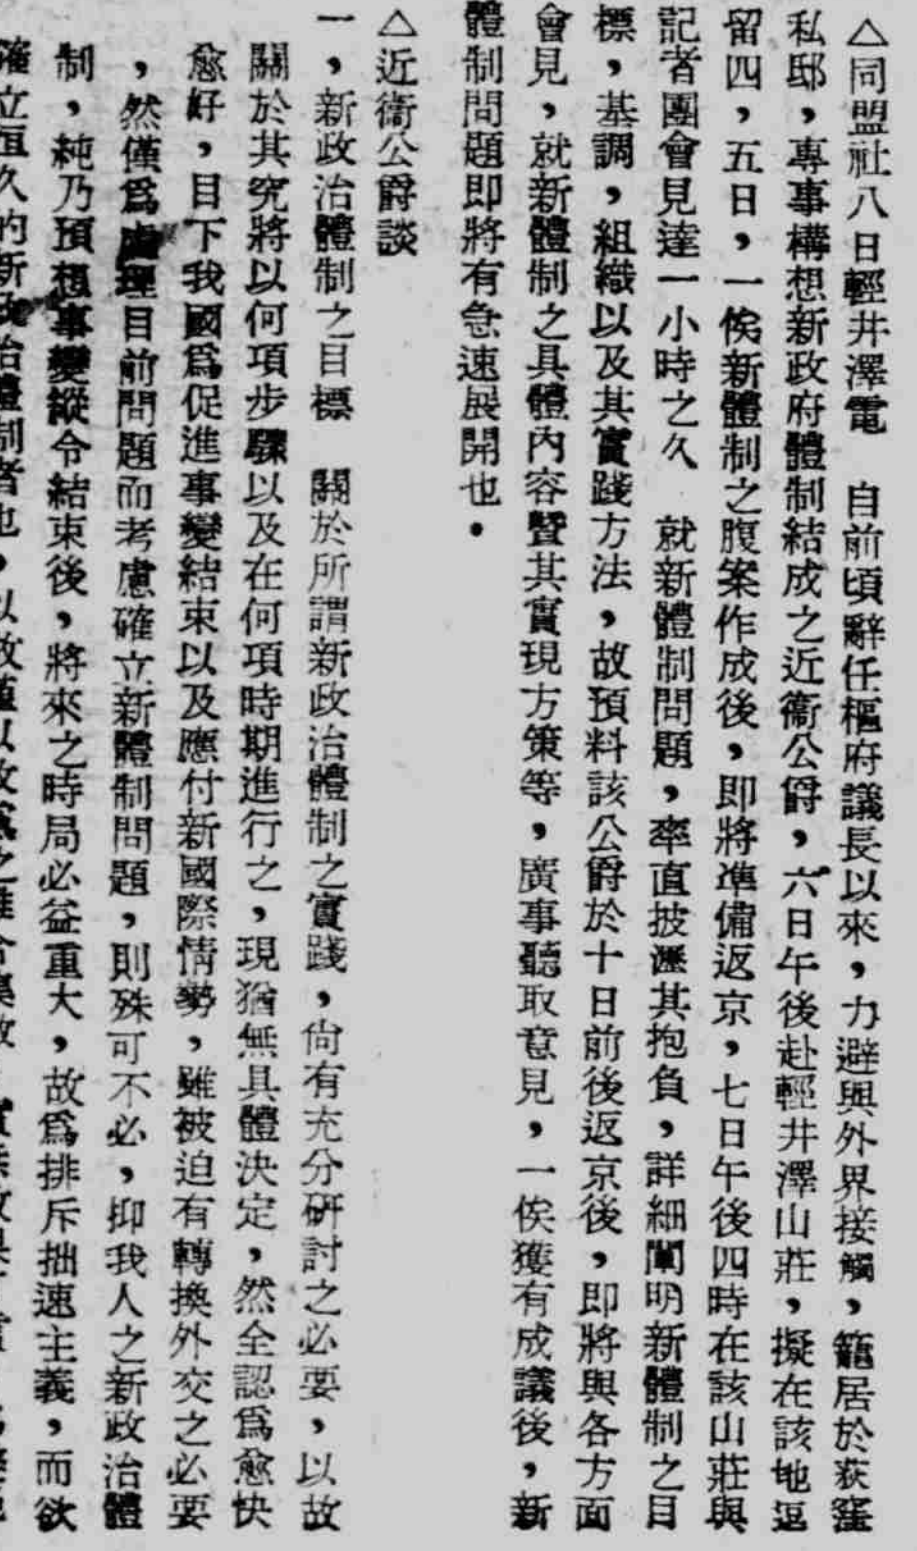 △同盟社八日輕井澤電　自前頃辭任樞府議長以來，力避與外界接觸，籠居於荻窪
私邸，專事構想新政府體制結成之近衞公爵，六日午後赴輕井澤山莊，擬在該地逗
留四，五日，一俟新體制之腹案作成後，即將準備返京，七日午後四時在該山莊與
記者團會見達一小時之久　就新體制問題，率直披瀝其抱負，詳細闡明新體制之目
標，基調，組織以及其實踐方法，故預料該公爵於十日前後返京後，即將與各方面
會見，就新體制之具體內容暨其實現方策等，廣事聽取意見，一俟獲有成議後，新
體制問題即將有急速展開也．
△近衞公爵談
一，新政治體制之目標　關於所謂新政治體制之實踐，尙有充分硏討之必要，以故
關於其究將以何項步驟以及在何項時期進行之，現猶無具體決定，然全認爲愈快
愈好，目下我國爲促進事變結束以及應付新國際情勢，雖被迫有轉換外交之必要
，然僅爲處理目前問題而考慮確立新體制問題，則殊可不必，抑我人之新政治體
制，純乃預想事變縱令結束後，將來之時局必益重大，故爲排斥拙速主義，而欲
確立恒久的新政治體制者也，以故僅以政黨之離合集散